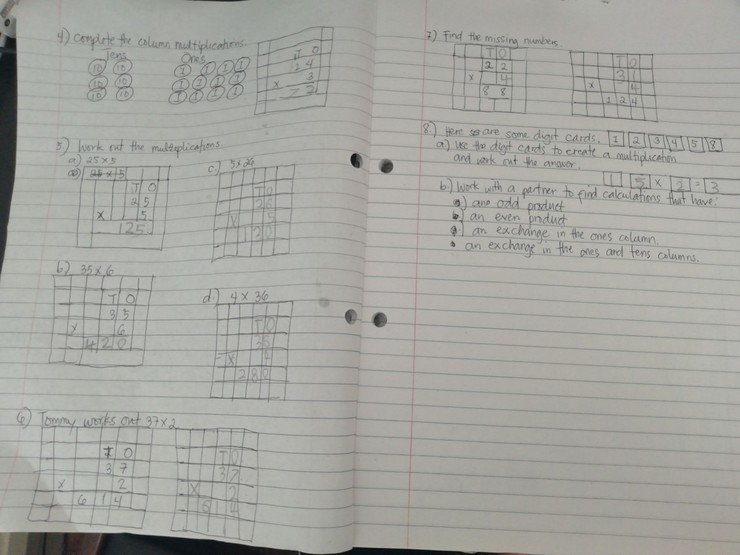 4) Complete the column multiplications.
Tens Ones
10 10 1 1 1 1
10 10 1 1 1 1
10 10 1 1 1 1
T O
2 4
x 3
7 2
5) Work out the multiplications
a) 25 x 5
T O
2 5
x 5
1 2 5
b) 35 x 6
T O
3 5
x 6
4 2 0
c) 5 x 26
T O
2 6
x 5
1 2 0
d) 4 x 36
T O
3 6
x
2 8
6) Tommy works out 37 x 2
T O
3 7
x 2
6 1 4
T O
3 7
x 2
6 1 4
7) Find the missing numbers.
T O
2 2
x 4
8 8
T O
3 1
x 4
1 2 4
8.) Here are some digit cards. 1 2 3 4 5 8
a) Use the digit cards to create a multiplication
and work out the answer.
5 x 2 = 3
b.) Work with a partner to find calculations that have:
an odd product
an even product
an exchange in the ones column.
an exchange in the ones and tens columns.